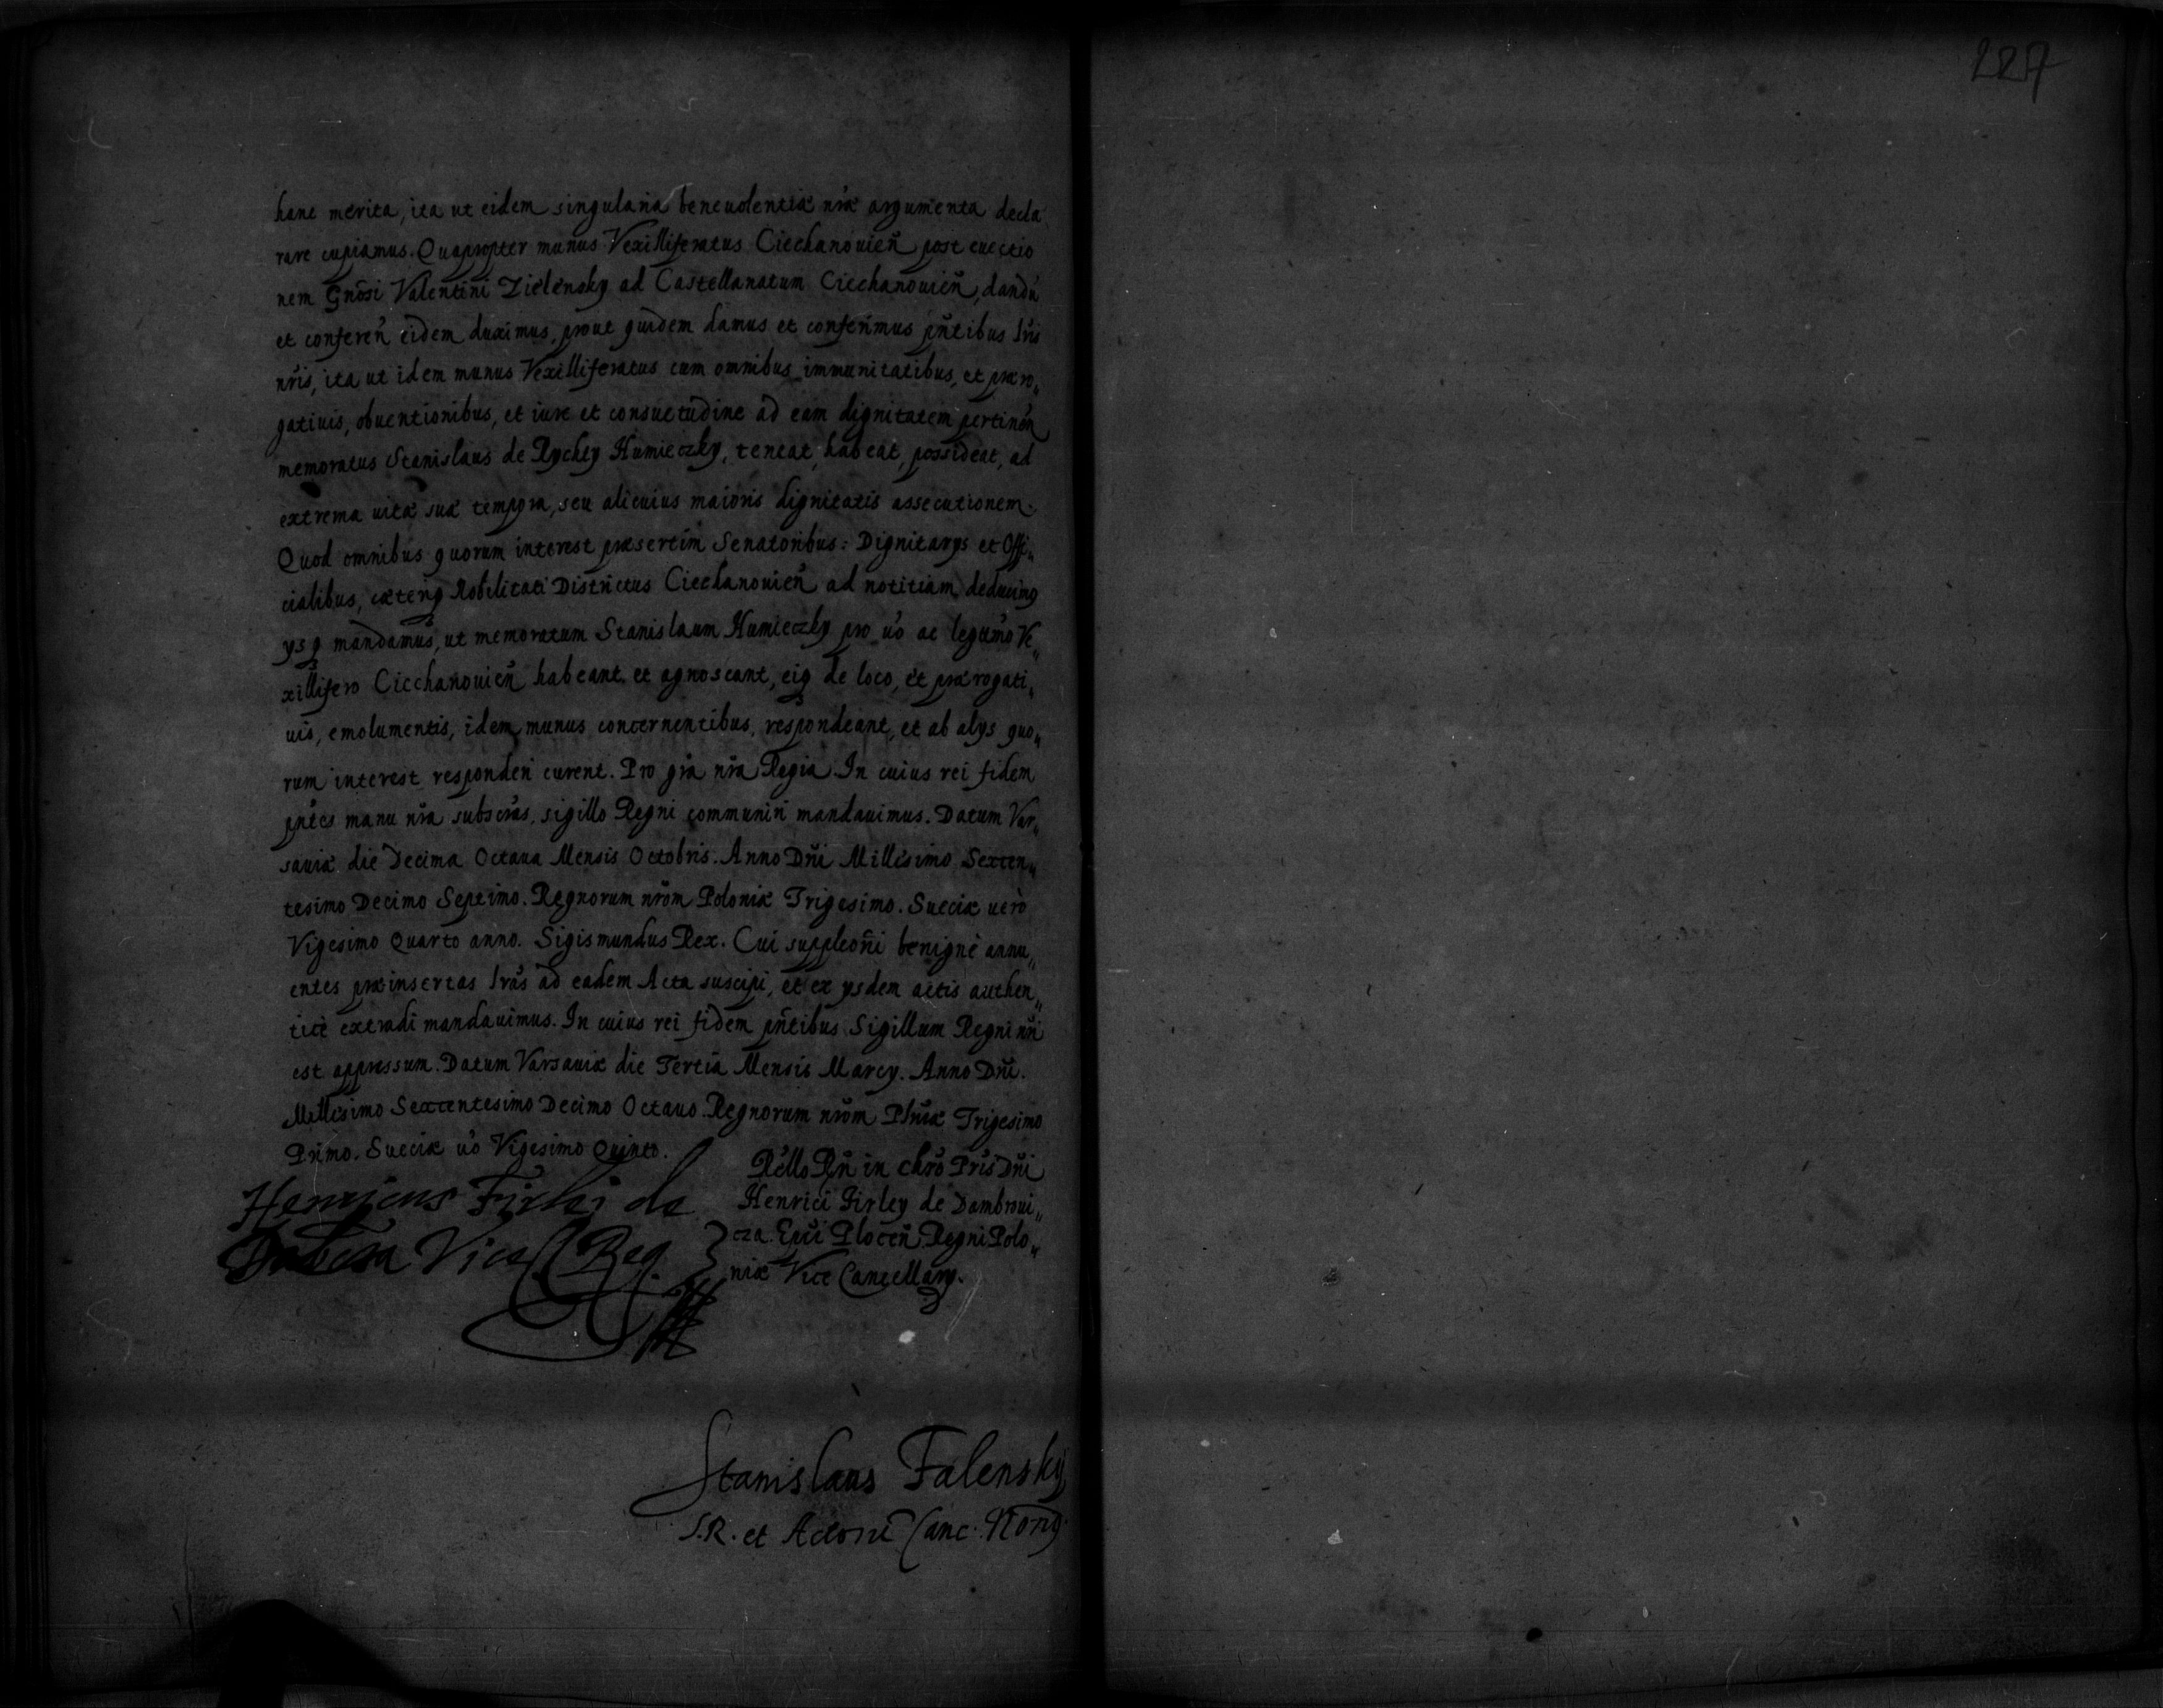 hanc merita, ita ut eidem singularia beneuolentiæ nr̃æ argumenta decla
rare cupiamus. Quapropter munus Vexilliferatus Ciechanouien̄ post euectio
nem Gnōsi Valentini Zielensky ad Castellanatum Ciechanouien̄, dandū
et conferen̄ eidem duximus, prout quidem damus et conferimus pñtibus lr̃is
nr̃is, ita ut idem munus Vexilliferatus cum omnibus immunitatibus, et præro„
gatiuis, obuentionibus, et iure et consuetudine ad eam dignitatem pertinen̄
memoratus Stanislaus de Rychty Humieczky, teneat, habeat, possideat, ad
extrema uitæ suæ tempora, seu alicuius maioris dignitatis assecutionem.
Quod omnibus quorum interest præsertim Senatoribus: Dignitarys et Offi„
cialibus, cæteriq Nobilitati Districtus Ciechanouien̄ ad notitiam deducimq
ysq mandamus, ut memoratum Stanislaum Humieczky pro uo ac legitimo Ve„
xillifero Ciechanouien̄ habeant et agnoscant, eiq de loco, et prærogati„
uis, emolumentis, idem munus concernentibus, respondeant, et ab alys quo„
rum interest responderi curent. Pro gr̃a nr̃a Regia. In cuius rei fidem
pñtes manu nr̃a subscr̃as, sigillo Regni communiri mandauimus. Datum Var„
sauiæ die Decima Octaua Mensis Octobris. Anno Dñi Millesimo Sexcen„
tesimo Decimo Septimo. Regnorum nr̃om Poloniæ Trigesimo. Sueciæ uerò
Vigesimo Quarto anno. Sigismundus Rex. Cui suppleoñi benignè annu„
entes præinsertas lr̃as ad eadem Acta suscipi, et ex ysdem actis authen„
ticè extradi mandauimus. In cuius rei fidem pñtibus Sigillum Regni nr̃i
est appressum. Datum Varsauiæ die Tertia Mensis Marcy. Anno Dñi.
Millesimo Sexcentesimo Decimo Octauo. Regnorum nr̃om Plñiæ Trigesimo
Primo. Sueciæ uo Vigesimo Quinto.
Rello Rñ in chrõ Pr̃is Dñi
Henrici Firley de Dambroui„
cza. Epi Plocen̄. Regni Polo„
niæ Vice Cancellary.
Henricus Firlei de
Vice Reg.
Stanislaus Falensky
S.R. et Actorū Canc:
227